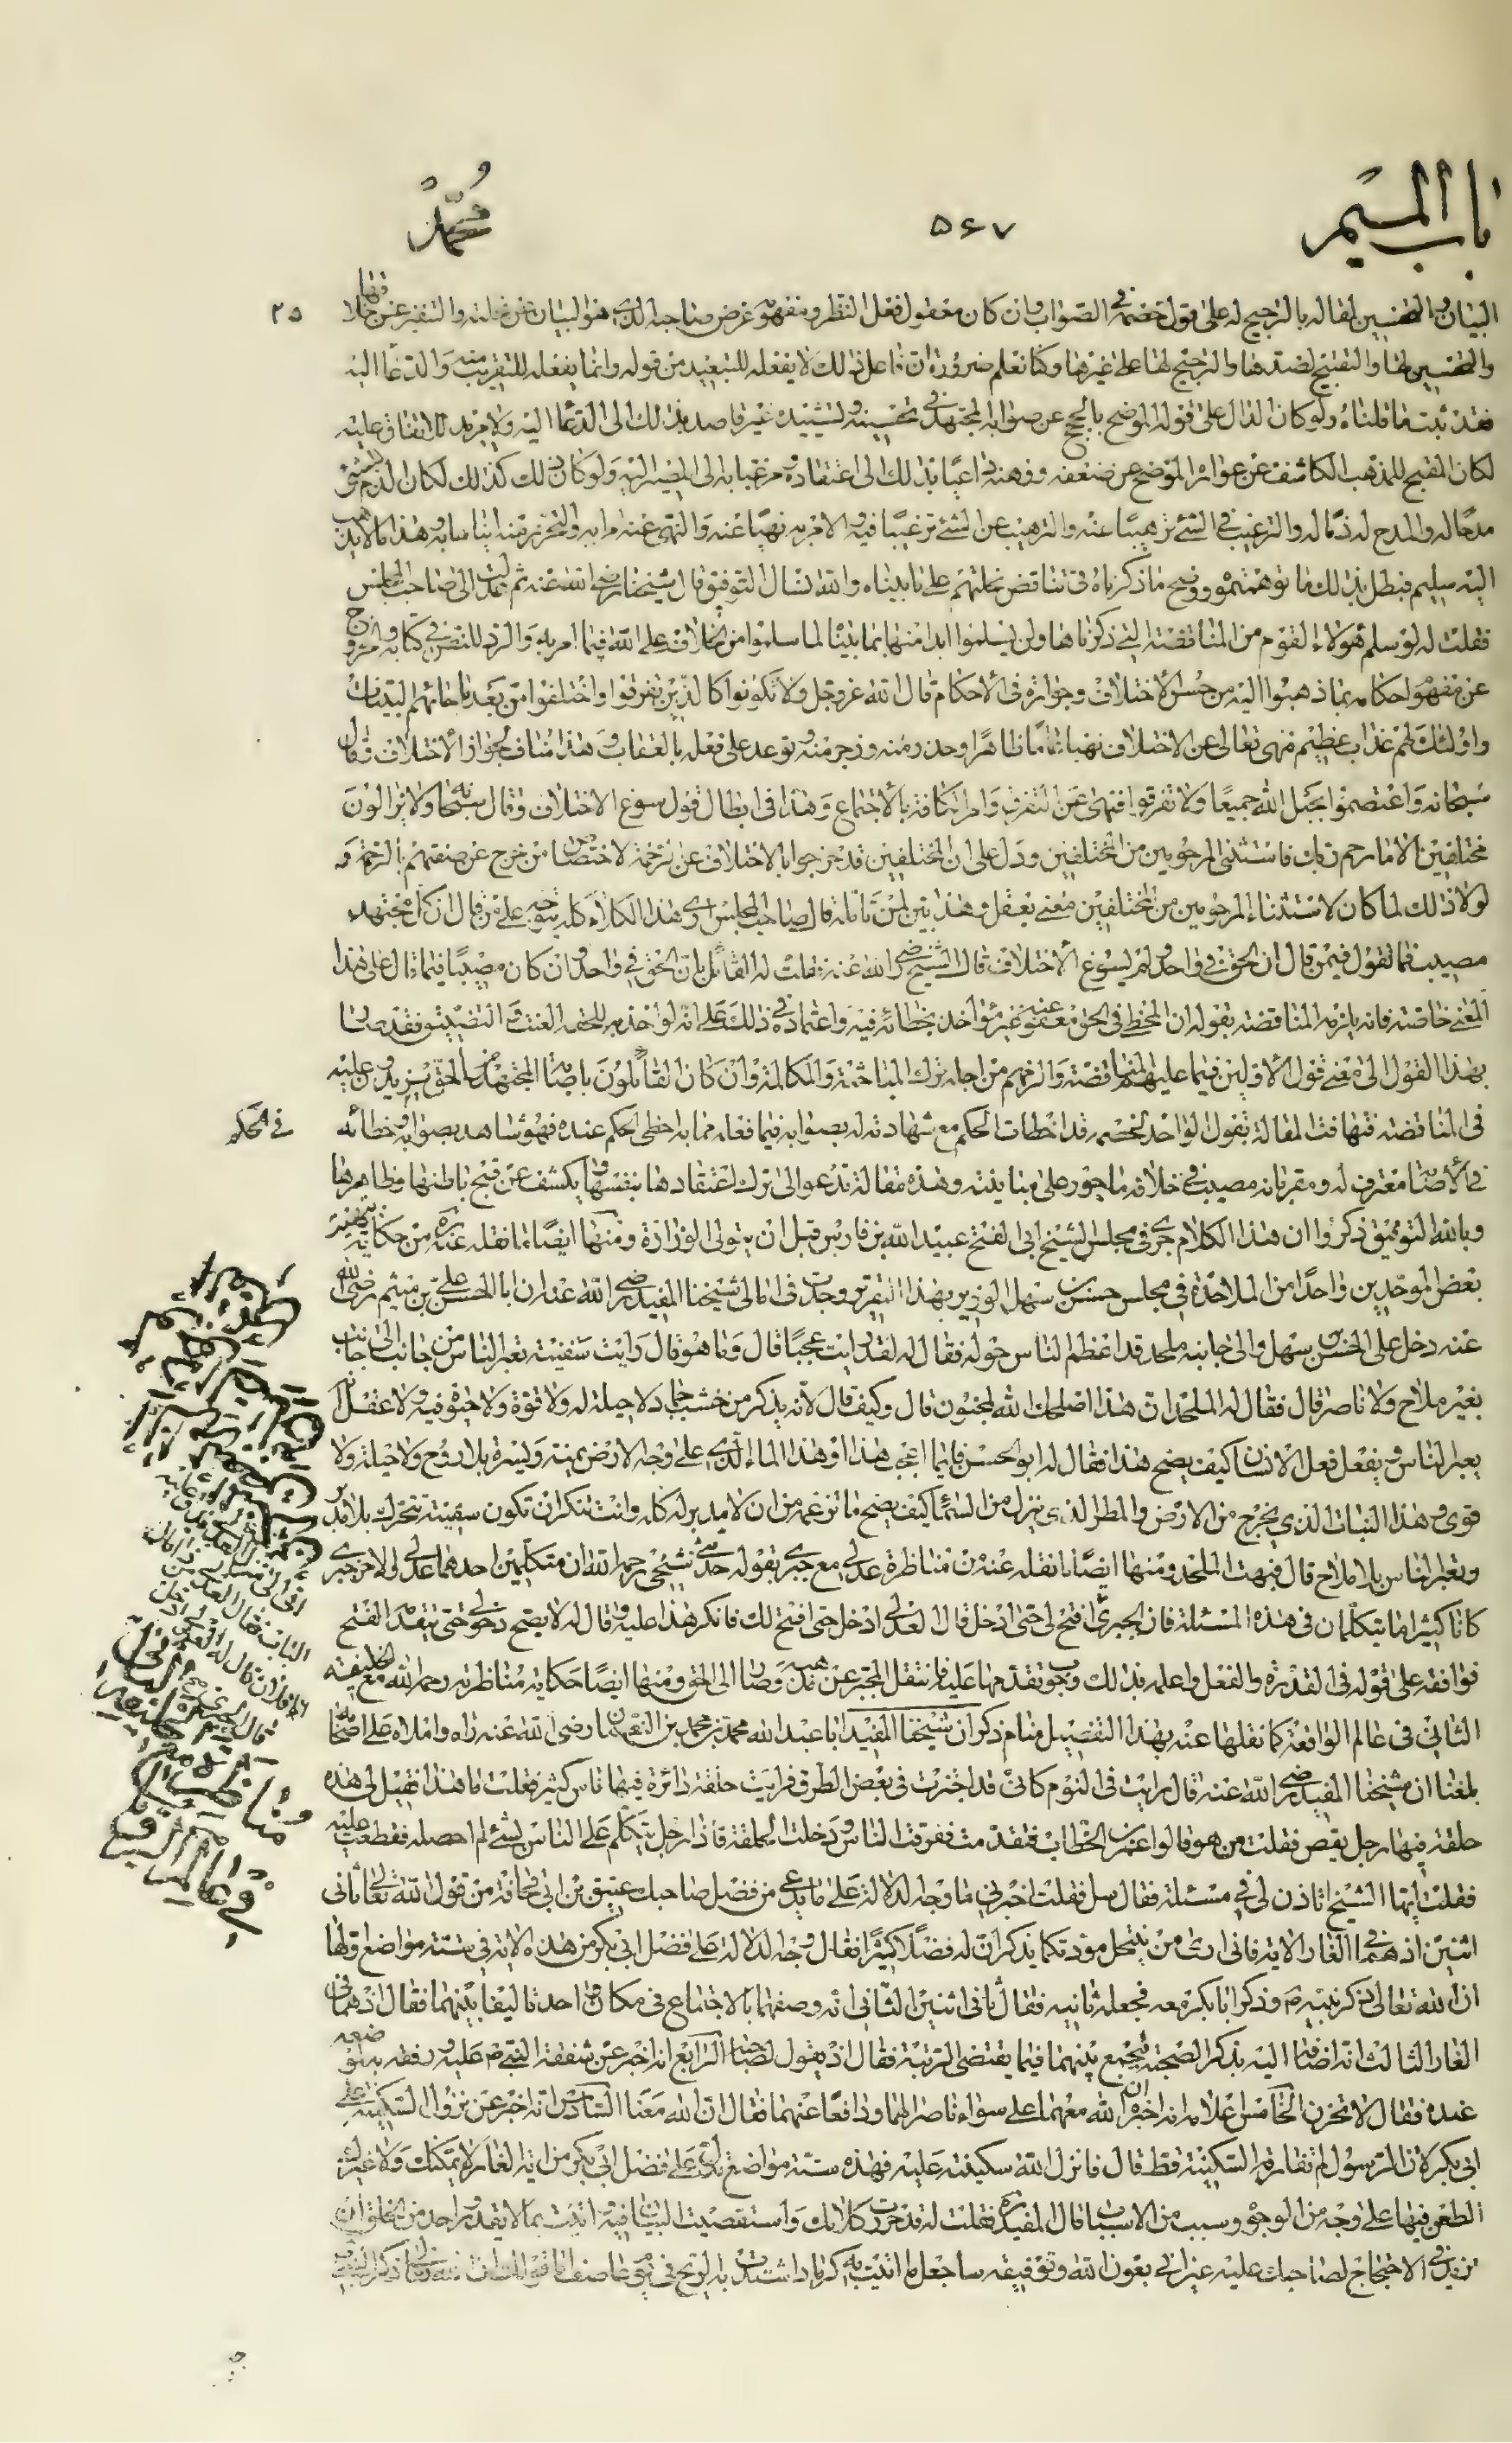 باب الميم
۵۶۷
محمد
البيان والتحسين لمقاله بالترجيح له على قول خصمه في الصواب وان كان معقول فعل النظر ومفهوم غرض صاحبه الذب هو البيان عن نحلته والتنفير عن خلافها
والتحسين لها والتقبيح لضدها والترجيح لها على غيرها وكنا نعلم ضرورة ان فاعل ذلك لا يفعله للتبعيد من قوله وانما يفعله للتقريب منه والدعا اليه
فقد ثبت ما قلناه ولو كان الدال على قوله الموضح بالحجج عن صوابه المجتهد في تحسينه وتشييده غير قاصد بذلك الى الدعا اليه ولا مريد للاتفاق عليه
لكان المقبح للمذهب الكاشف عن عواره الموضح عن ضعفه ووهنه داعيا بذلك الى اعتقاده ومرغبا به الى المصير اليه ولو كان ذلك كذلك لكان الذم للشئ
مدحا له والمدح له ذما له والترغيب في الشئ ترهيبا عنه والترهيب عن الشئ ترغيبا فيه والامر به نهيا عنه والنهي عنه امرا به والتحذير منه ايناسا به وهذا ما لا يذهب
اليه سليم فبطل بذلك ما توهمتموه ووضح ما ذكرناه في تناقض نحلتهم على ما بيناه والله نسأل التوفيق قال شيخنا رضي الله عنه ثم عدلت الى صاحب المجلس
فقلت له لو سلم هؤلاء القوم من المناقضة التي ذكرناها ولن يسلموا ابدا منها بما بينا لما سلموا من الخلاف على الله فيما امر به والرد للنص في كتابه والخروج
عن مفهوم احكامه بما ذهبوا اليه من حسن الاختلاف وجوازه في الاحكام قال الله عز وجل ولا تكونوا كالذين تفرقوا واختلفوا من بعد ما جائهم البينات
واولئك لهم عذاب عظيم فنهى تعالى عن الاختلاف نهيا عاما ظاهرا وحذر منه وزجر عنه وتوعد على فعله بالعقاب وهذا مناف لجواز الاختلاف وقال
سبحانه واعتصموا بحبل الله جميعا ولا تفرقوا فنهى عن التفرق وامر الكافة بالاجتماع وهذا في ابطال قول سوغ الاختلاف وقال سبحانه ولا يزالون
مختلفين الا من رحم ربك فاستثنى المرحومين من المختلفين ودل على ان المختلفين قد خرجوا بالاختلاف عن الرحمة لاختصاص من خرج عن صفتهم بالرحمة و
لولا ذلك لما كان لاستثناء المرحومين من المختلفين معنى يعقل وهذا بين لمن تامله قال صاحب المجلس ارى هذا الكلام كله يتوجه على من قال ان كل مجتهد
مصيب فما تقول فيمن قال ان الحق في واحد ولم يسوغ الاختلاف قال الشيخ رضي الله عنه فقلت له القائل بان الحق في واحد وان كان مصيبا فيما قال على هذا
المعنى خاصة فانه يلزمه المناقضة بقوله ان المخطي في الحق معفو عنه غير مؤاخذ بخطائه فيه واعتماده في ذلك على انه لو اخذ به للحقه العنت والتضييق فقد صار
بهذا القول الى معنى قول الاولين فيما عليهم من المناقضة والزمهم من اجله ترك المباحثة والمكالمة وان كان القائلون باصابة المجتهدين الحق يزيدون عليه
في المناقضة وتهافت المقالة بقول الواحد لخصمه قد اخطأت الحكم مع شهادته له بصوابه فيما فعله مما به اخطى الحكم عنده فهو شاهد بصوابه وخطائه
في الحكم
في الاصابة معترف له ومقر بانه مصيب في خلافه ماجور على مباينته وهذه مقالة تدعوا الى ترك اعتقادها بنفسها وتكشف عن قبح باطنها وظاهرها
وبالله التوفيق ذكروا ان هذا الكلام جرى في مجلس الشيخ ابي الفتح عبيد الله بن فارس قبل ان يتولى الوزارة ومنها ايضا ما نقله عنه ره من حكاية تبهيت
بعض الموحدين واحدا من الملاحدة في مجلس حسن بن سهل الوزير بهذا التقرير وجدت في امالي شيخنا المفيد رضي الله عنه ان ابا الحسن علي بن ميثم رضي الله
عنه دخل على الحسن بن سهل والى جانبه ملحد قد اعظم الناس حوله فقال له لقد رايت عجبا قال وما هو قال رايت سفينة تعبر الناس من جانب الى جانب
بغير ملاح ولا ناصر قال فقال له الملحد ان هذا اصلحك الله لمجنون قال وكيف قال لانه يذكر من خشب جماد لا حيلة له ولا قوة ولا حيوة فيه ولا عقل انه
يعبر الناس ويفعل فعل الانسان كيف يصح هذا فقال له ابو الحسن فايما اعجب هذا او هذا الماء الذي على وجه الارض يمنة ويسرة بلا روح ولا حيلة ولا
قوى وهذا النبات الذي يخرج من الارض والمطر الذي ينزل من السماء كيف يصح ما تزعمه من ان لا مدبر له كله وانت تنكر ان تكون سفينة تتحرك بلا مدبر
وتعبر الناس بلا ملاح قال فبهت الملحد ومنها ايضا ما نقله عنه من مناظرة عدلي مع جبري بقوله حدثني شيخي رحمه الله ان متكلمين احدهما عدلي والاخر جبري
كانا كثيرا ما يتكلمان في هذه المسئلة فان الجبري افتح لي حتى ادخل قال العدلي ادخل حتى افتح لك فانكر هذا عليه وقال له لا يصح دخولي حتى يتقدم الفتح
فوافقه على قوله في القدرة والفعل واعلمه بذلك وجوب تقدمها عليه فانتقل المجبر عن مذهبه وصار الى الحق ومنها ايضا حكاية مناظرته رحمه الله مع الخليفة
الثاني في عالم الواقعة كما نقلها عنه بهذا التفصيل منام ذكر ان شيخنا المفيد ابا عبد الله محمد بن محمد بن النعمان رضي الله عنه راه واملاه على اصحابه
بلغنا ان شيخنا المفيد رضي الله عنه قال رايت في النوم كاني قد اجتزت في بعض الطرق فرايت حلقة دائرة فيها ناس كثير فقلت ما هذا فقيل لي هذه
حلقة فيها رجل يقص فقلت من هو قالوا عمر بن الخطاب فتقدمت ففرقت الناس ودخلت الحلقة فاذا رجل يتكلم على الناس بشئ لم احصله فقطعت عليه
فقلت ايها الشيخ اتاذن لي في مسئلة فقال سل فقلت اخبرني ما وجه الدلالة على ما يدعى من فضل صاحبك عتيق بن ابي قحافة من قول الله تعالى ثاني
اثنين اذ هما في الغار الاية فاني ارى من ينتحل مودتكما يذكر ان له فضلا كثيرا فقال وجه الدلالة على فضل ابي بكر من هذه الاية في ستة مواضع اولها
ان الله تعالى ذكر نبيه ص وذكر ابا بكر معه فجعله ثانيه فقال ثاني اثنين الثاني انه وصفهما بالاجتماع في مكان واحد تاليفا بينهما فقال اذ هما في
الغار الثالث انه اضافه اليه بذكر الصحبة فيجمع بينهما فيما يقتضي الرتبة فقال اذ يقول لصاحبه الرابع انه اخبر عن شفقة النبي ص عليه ورفقه به لموضعه
عنده فقال لا تحزن الخامس اعلامه انه اخبره ان الله معهما على سواء ناصرا لهما ودافعا عنهما فقال ان الله معنا السادس انه اخبر عن نزول السكينة على
ابي بكر لان الرسول لم تفارقه السكينة قط قال فانزل الله سكينته عليه فهذه ستة مواضع تدل على فضل ابي بكر من اية الغار لا يمكنك ولا غيرك
الطعن فيها على وجه من الوجوه وسبب من الاسباب قال المفيد ره فقلت له قد حررت كلامك واستقصيت البيان فيه واتيت بما لا يقدر احد من الخلق ان
يزيد في الاحتجاج لصاحبك عليه غير اني بعون الله وتوفيقه ساجعل ما اتيت به كرماد اشتدت به الريح في يوم عاصف